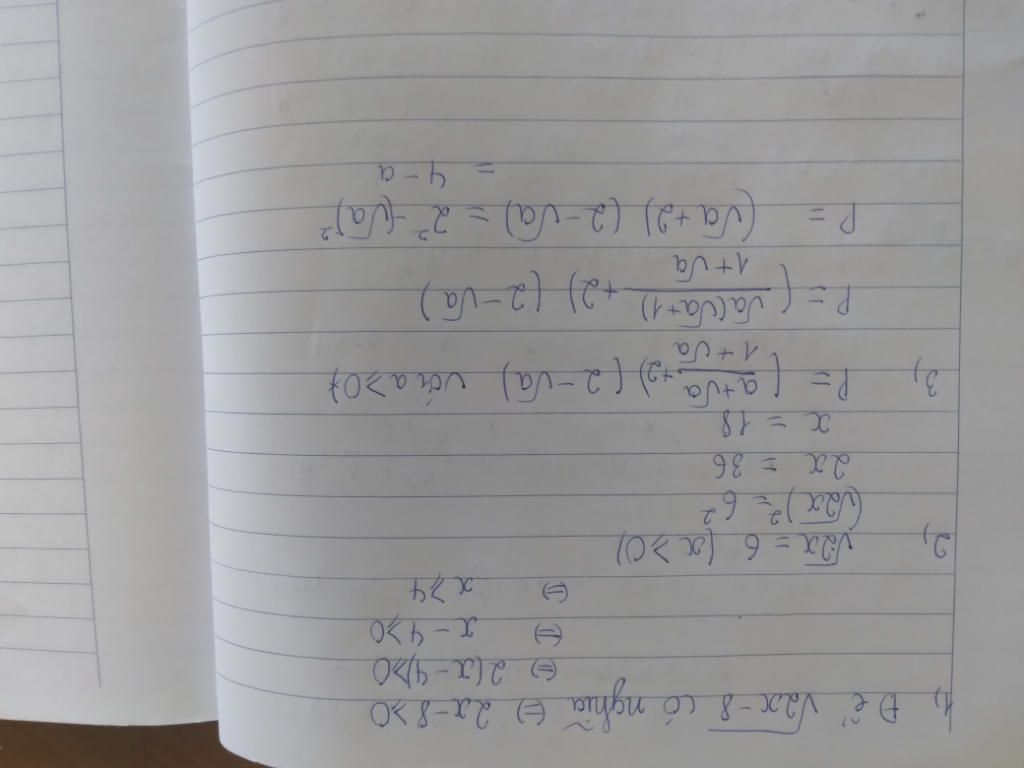 1, Để √2x-8 có nghĩa ⇔ 2x-8≥0
⇔ 2(x-4)≥0
⇔ x-4≥0
⇔ x≥4
2, √2x = 6 (x≥0)
(√2x)² = 6²
2x = 36
x = 18
3, P = (a+√a / 1+√a +2) (2-√a) với a≥0
P = (√a(√a+1) / 1+√a +2) (2-√a)
P = (√a+2) (2-√a) = 2²-(√a)²
= 4-a